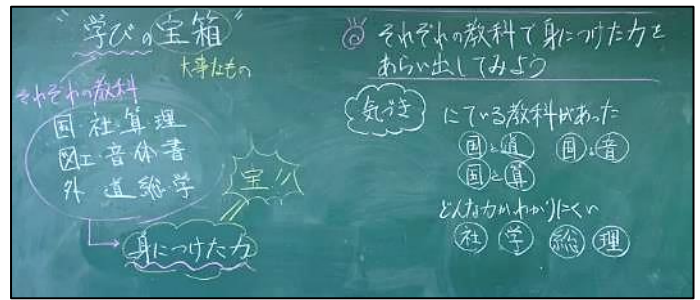 "学びの宝箱"
大事なもの
それぞれの教科
国・社・算・理
図工・音・体・書
外 道 総・学
宝!!
身につけた力
◎ それぞれの教科で身につけた力を
あらい出してみよう
気づき
にている教科があった
国と道 国と音
国と算
どんな力かわかりにくい
社 学 総 理